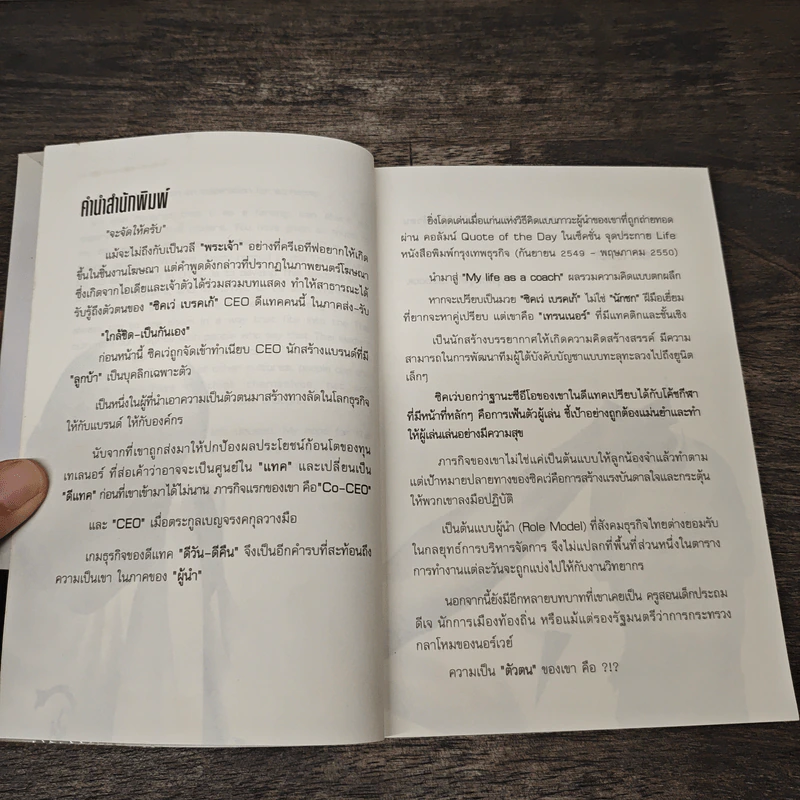 คำนำสำนักพิมพ์
"จะจัดให้ครับ"
แม้จะไม่ถึงกับเป็นวลี "พระเจ้า" อย่างที่ครีเอทีฟอยากให้เกิด
ขึ้นในชิ้นงานโฆษณา แต่คำพูดดังกล่าวที่ปรากฏในภาพยนตร์โฆษณา
ซึ่งเกิดจากไอเดียและเจ้าตัวได้ร่วมสวมบทแสดง ทำให้สาธารณะได้
รับรู้ถึงตัวตนของ "ซิคเว่ เบรคเก้" CEO ดีแทคคนนี้ ในภาคส่ง-รับ
"ใกล้ชิด-เป็นกันเอง"
ก่อนหน้านี้ ซิคเว่ถูกจัดเข้าทำเนียบ CEO นักสร้างแบรนด์ที่มี
"ลูกบ้า" เป็นบุคลิกเฉพาะตัว
เป็นหนึ่งในผู้ที่นำเอาความเป็นตัวตนมาสร้างทางลัดในโลกธุรกิจ
ให้กับแบรนด์ ให้กับองค์กร
นับจากที่เขาถูกส่งมาให้ปกป้องผลประโยชน์ก้อนโตของทุน
เทเลนอร์ ที่ส่อเค้าว่าอาจจะเป็นศูนย์ใน "แทค" และเปลี่ยนเป็น
"ดีแทค" ก่อนที่เขาเข้ามาได้ไม่นาน ภารกิจแรกของเขา คือ"Co-CEO"
และ "CEO" เมื่อตระกูลเบญจรงคกุลวางมือ
เกมธุรกิจของดีแทค "ดีวัน-ดีคืน" จึงเป็นอีกคำรบที่สะท้อนถึง
ความเป็นเขา ในภาคของ "ผู้นำ"
ยิ่งโดดเด่นเมื่อแก่นแห่งวิธีคิดแบบภาวะผู้นำของเขาที่ถูกถ่ายทอด
ผ่าน คอลัมน์ Quote of the Day ในเซ็คชั่น จุดประกาย Life
หนังสือพิมพ์กรุงเทพธุรกิจ (กันยายน 2549 – พฤษภาคม 2550)
นำมาสู่ "My life as a coach" ผลรวมความคิดแบบตกผลึก
หากจะเปรียบเป็นมวย "ซิคเว่ เบรคเก้" ไม่ใช่ "นักชก" ฝีมือเยี่ยม
ที่ยากจะหาคู่เปรียบ แต่เขาคือ "เทรนเนอร์" ที่มีแทคติกและชั้นเชิง
เป็นนักสร้างบรรยากาศให้เกิดความคิดสร้างสรรค์ มีความ
สามารถในการพัฒนาทีมผู้ใต้บังคับบัญชาแบบทะลุทะลวงไปถึงยูนิต
เล็กๆ
ซิคเว่บอกว่าฐานะซีอีโอของเขาในดีแทคเปรียบได้กับโค้ชกีฬา
ที่มีหน้าที่หลักๆ คือการเฟ้นตัวผู้เล่น ชี้เป้าอย่างถูกต้องแม่นยำและทำ
ให้ผู้เล่นเล่นอย่างมีความสุข
ภารกิจของเขาไม่ใช่แค่เป็นต้นแบบให้ลูกน้องจำแล้วทำตาม
แต่เป้าหมายปลายทางของซิคเว่คือการสร้างแรงบันดาลใจและกระตุ้น
ให้พวกเขาลงมือปฏิบัติ
เป็นต้นแบบผู้นำ (Role Model) ที่สังคมธุรกิจไทยต่างยอมรับ
ในกลยุทธ์การบริหารจัดการ จึงไม่แปลกที่พื้นที่ส่วนหนึ่งในตาราง
การทำงานแต่ละวันจะถูกแบ่งไปให้กับงานวิทยากร
นอกจากนี้ยังมีอีกหลายบทบาทที่เขาเคยเป็น ครูสอนเด็กประถม
ดีเจ นักการเมืองท้องถิ่น หรือแม้แต่รองรัฐมนตรีว่าการกระทรวง
กลาโหมของนอร์เวย์
ความเป็น "ตัวตน" ของเขา คือ ?!?